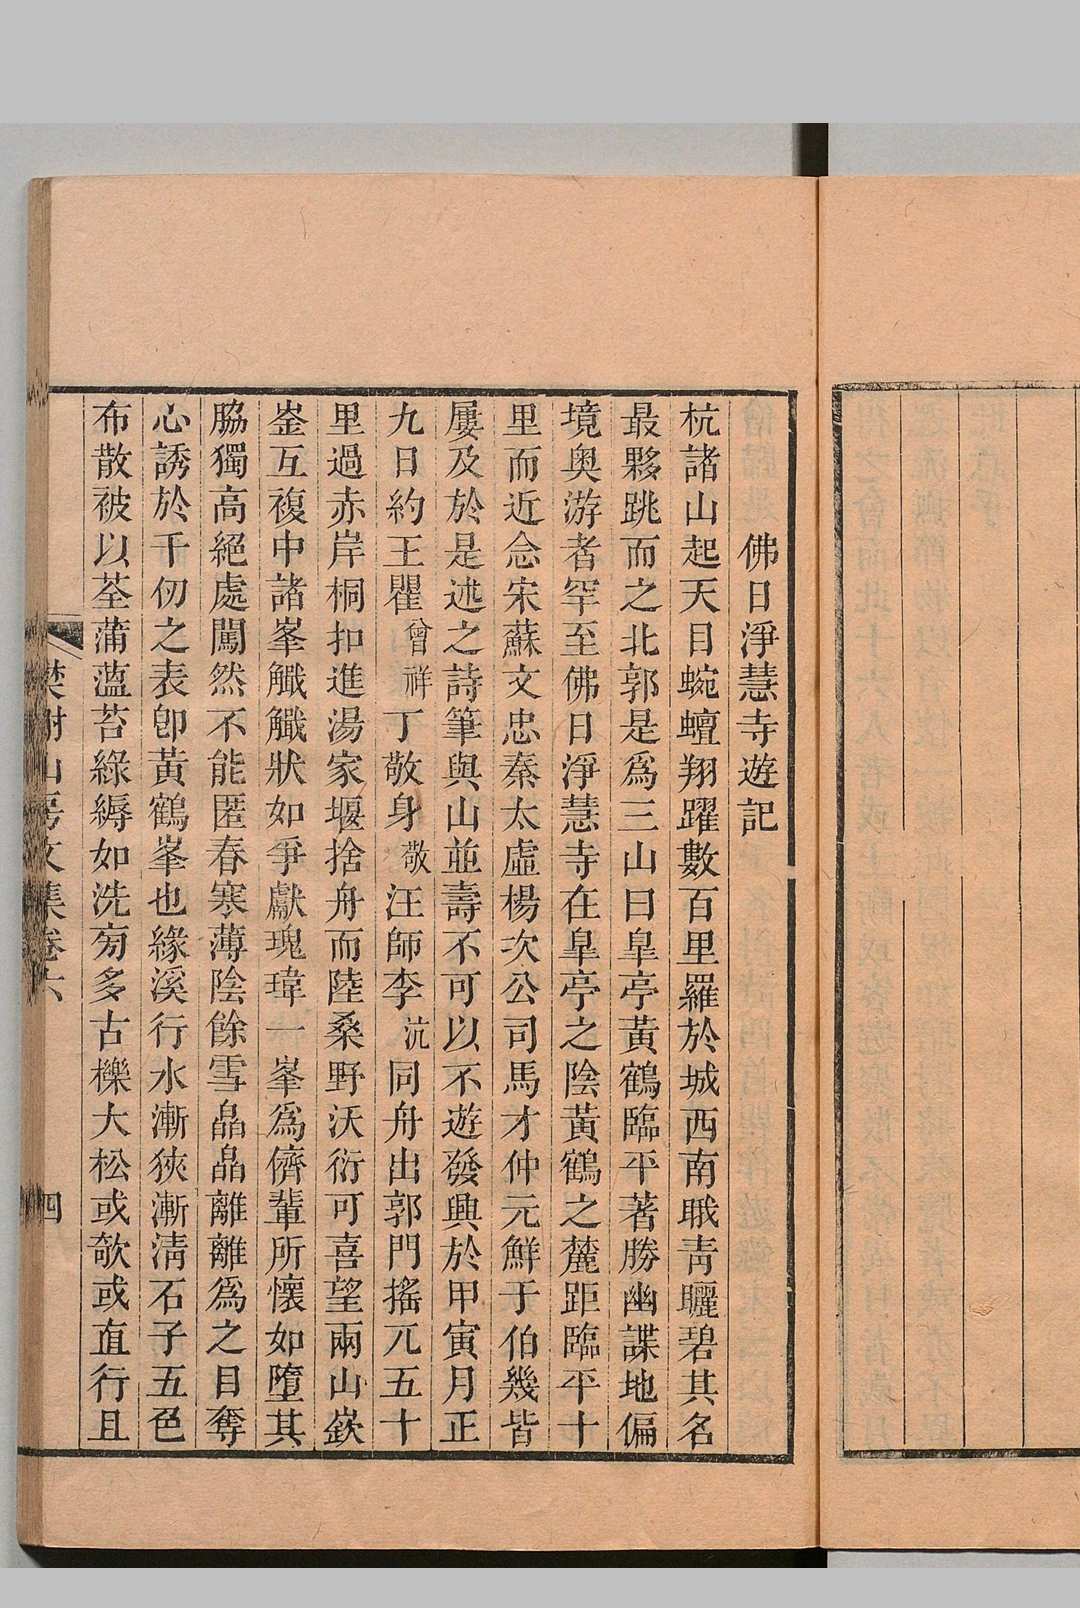 佛日淨慧寺遊記
杭諸山起天目蜿蟺翔躍數百里羅於城西南眡靑曬碧其名
最夥跳而之北郭是爲三山曰臯亭黃鶴臨平著勝幽諜地偏
境奥游者罕至佛日淨慧寺在臯亭之陰黃鶴之麓距臨平十
里而近念宋蘇文忠秦太虛楊次公司馬才仲元鮮于伯幾皆
屢及於是述之詩筆與山並壽不可以不遊發興於甲寅月正
九日約王瞿曾祥丁敬身敬汪師李沆同舟出郭門搖兀五十
里過赤岸桐扣進湯家堰捨舟而陸桑野沃衍可喜望兩山嶔
崟互複中諸峯觺觺狀如爭獻瑰瑋一峯爲儕輩所懷如墮其
脇獨高絕處闖然不能匿春寒薄陰餘雪皛皛離離爲之目奪
心誘於千仞之表卽黃鶴峯也緣溪行水漸狹漸淸石子五色
布散被以荃蒲薀苔綠縟如洗旁多古櫟大松或欹或直行且
樊榭山房文集卷六
四